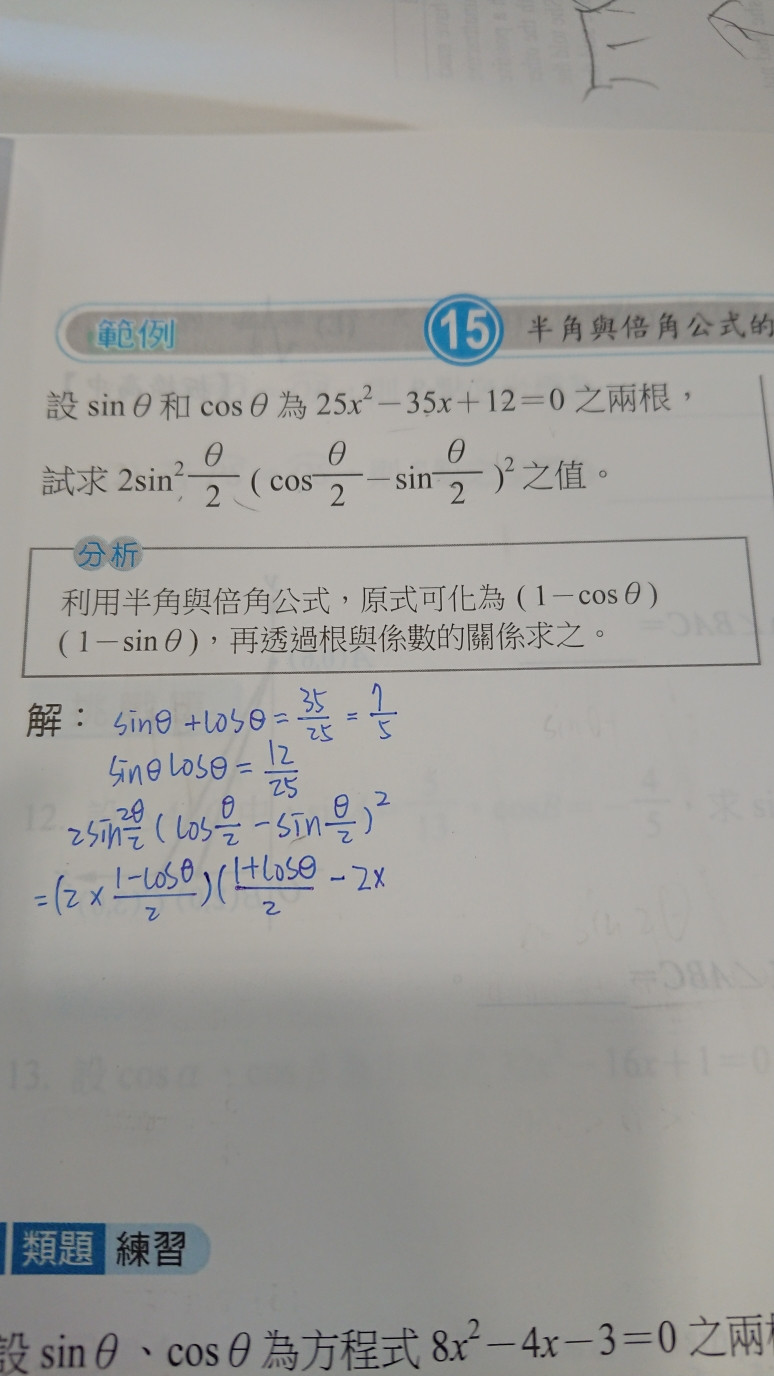 範例 15 半角與倍角公式的
設 sin θ 和 cos θ 為 25x²−35x+12=0 之兩根，
試求 2sin² θ/2 ( cos θ/2 − sin θ/2 )² 之值。
分析
利用半角與倍角公式，原式可化為 ( 1−cos θ )
( 1−sin θ )，再透過根與係數的關係求之。
解： sinθ + cosθ = 35/25 = 7/5
sinθ cosθ = 12/25
2sin² θ/2 ( cos θ/2 − sin θ/2 )²
= (2 × 1−cosθ/2 )( 1+cosθ/2 − 2×
類題 練習
設 sin θ、cos θ 為方程式 8x²−4x−3=0 之兩